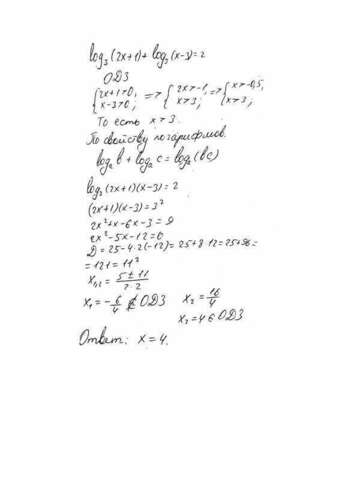 log₃(2x+1)+log₃(x-3)=2
ОДЗ
{2x+1>0, x-3>0; => {2x>-1, x>3; => {x>-0,5, x>3;
То есть x>3.
По свойству логарифмов.
logₐb+logₐc=logₐ(bc)
log₃(2x+1)(x-3)=2
(2x+1)(x-3)=3²
2x²+x-6x-3=9
2x²-5x-12=0
D=25-4·2(-12)=25+8·12=25+96=
=121=11²
x₁,₂=(5±11)/(2·2)
x₁=-6/4 ∉ ОДЗ x₂=16/4
x₂=4 ∈ ОДЗ
Ответ: x=4.